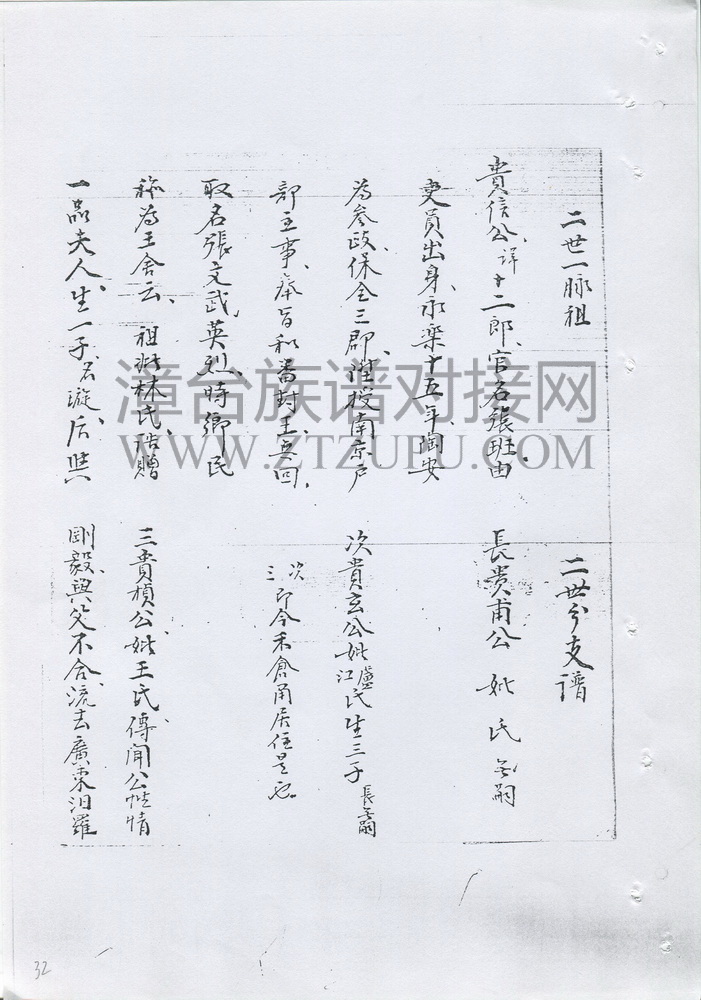 二世一脉祖
貴信公、諱十二郎、官名張班、由
吏員出身、永楽十五年陶安
為参政、保全三郡、陞授南京戶
部主事、奉旨和番封王、兵回、
取名張文武、英烈、時鄉民
称為王舍云、祖妣林氏、誥贈
一品夫人、生一子、名漩、后與
二世分支譜
長贵甫公 妣 氏 無嗣
次貴玄公妣盧江氏生三子長無嗣
次三即今禾倉甬居住是也
三貴楨公、妣王氏、傳聞公性情
剛毅、與父不合、流去廣東汨羅
漳台族谱对接网
WWW.ZTZUPU.COM
32